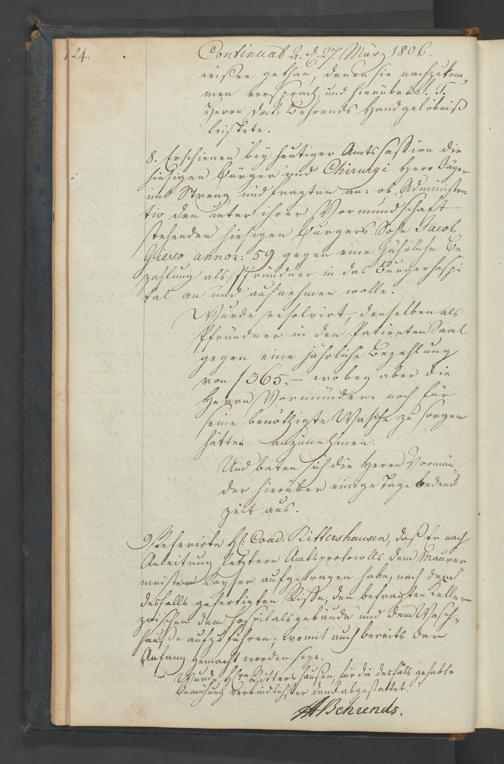 124.
Continuat. d. d. 27. März 1806.
wissen gethan, denen sie nachzukom,
men versprach und hierüber S. T.
Herrn Doct. Behrends Handgelöbniß
leistete.
8. Erschienen bey heutiger Amts Session die
hiesigen Bürger und Chirurgi Herr Jäger
und Streng und fragten an: ob Administra
tio den unter ihrer Vormundschaft
stehenden hiesigen Burgers Sohn Jacob
annor: 59 gegen eine jährliche Be
zahlung als Pfründner in das Bürgerhospi
tal an und aufnehmen wolle.
Wurde resolvirt, denselben als
Pfründner in den Patienten Saal
gegen eine jährliche Bezahlung
von f 365.- wobey aber die
Herrn Vormündere noch für
seine benöthigte Wasche zu sorgen
hätten anzunehmen.
Und baten sich die Herrn Vormün
der hierüber einige Tage Bedenk
zeit aus.
9. Referirte Hl. Coad. Rittershausen, daß er nach
Anleitung letztern Amtsprotocolls dem Maurer
meister Kayser aufgetragen habe, nach dem
desfalls gefertigten Risse, den befragten Keller
zwischen dem Hospitalgebäude und dem Wasch,
hauße aufzuführen; womit auch bereits der
Anfang gemacht worden seye.
Wurde Hl. Rittershausen, für die desfalls gehabte
Bemühung verbindlichster Dank abgestattet.
Behrends.